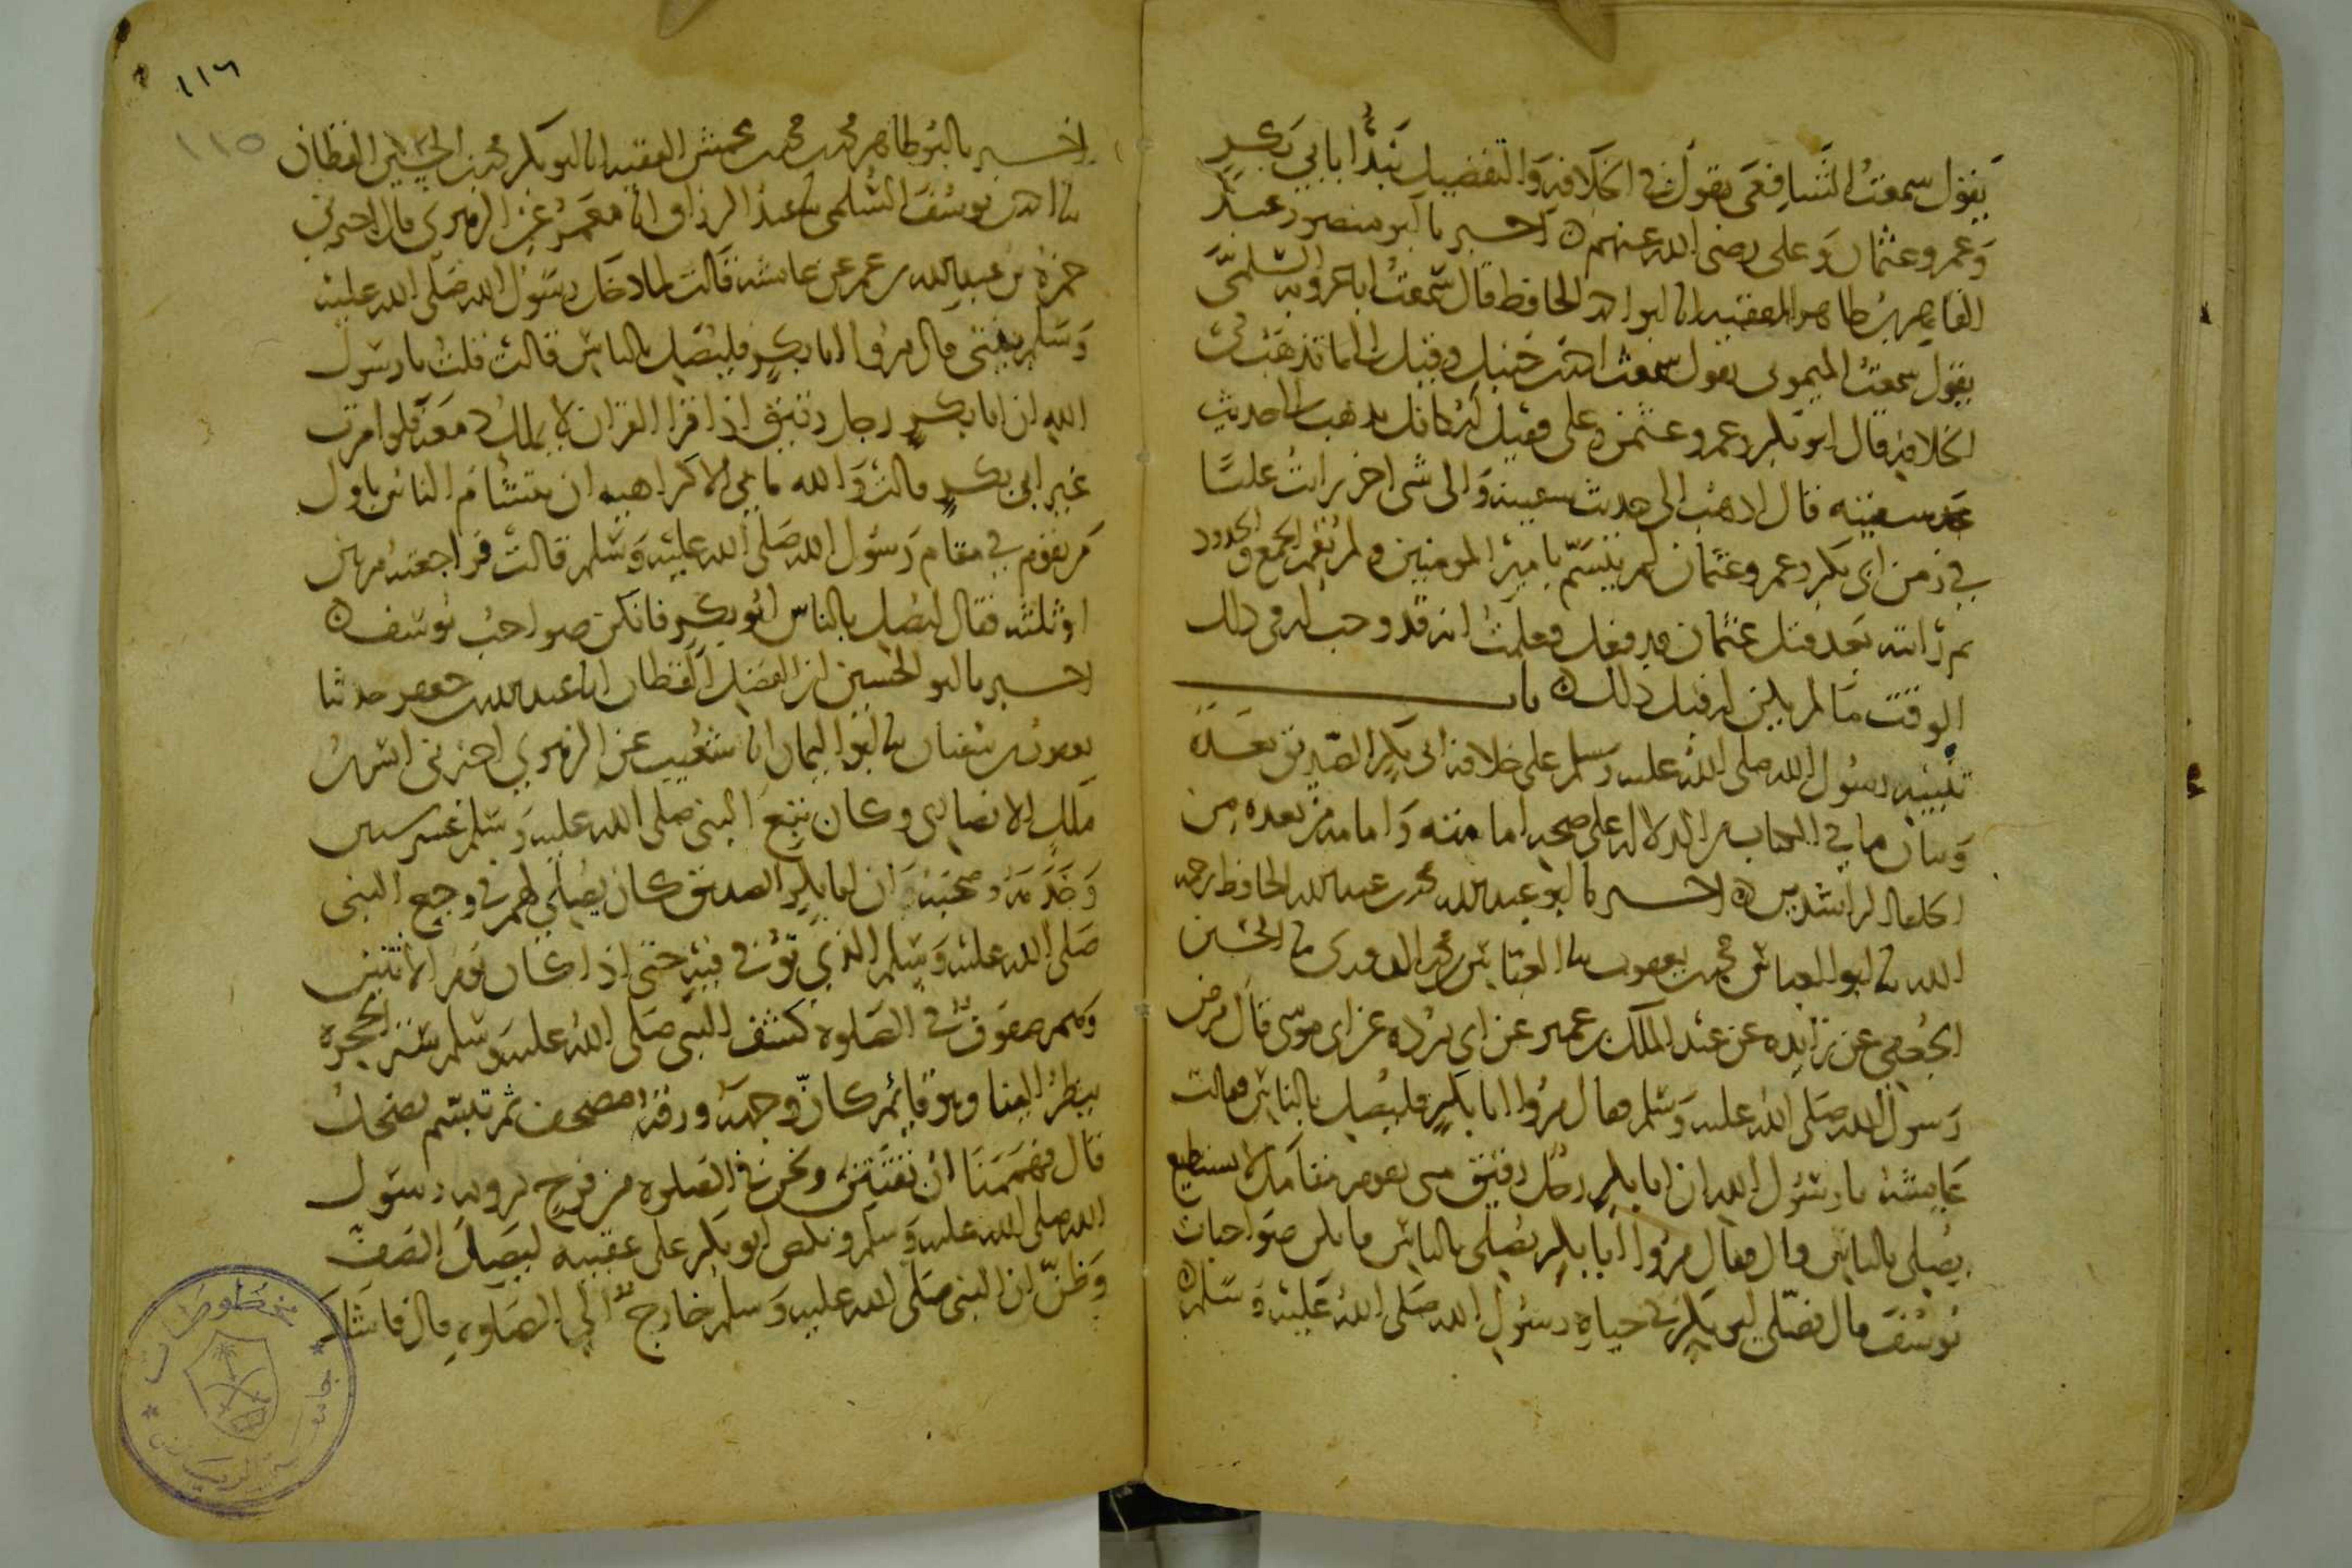 يقول سمعت الشافعي يقول في الخلافة والتفضيل نبدأ بابي بكر
وعمر وعثمان وعلي رضي الله عنهم اخبرنا ابو منصور عبد
القاهر بن طاهر الفقيه انا ابو احمد الحافظ قال سمعت ابا عروبة السلمي
يقول سمعت الميموني يقول سمعت احمد بن حنبل وقيل له الى ما تذهب في
الخلافة قال ابو بكر وعمر وعثمن وعلي فقيل له كانك تذهب الى حديث
سفينة قال اذهب الى حديث سفينة والى شي اخر رايت عليا
في زمن ابي بكر وعمر وعثمان لم يتسم بامير المومنين ولم يقم الجمع والحدود
ثم رايته بعد قتل عثمان قد فعل فعلمت انه قد وجب له في ذلك
الوقت ما لم يكن له قبل ذلك باب
تنبيه رسول الله صلى الله عليه وسلم على خلافة ابي بكر الصديق بعده
وبيان ما في الكتاب من الدلالة على صحة امامته وامامة من بعده من
الخلفاء الراشدين اخبرنا ابو عبد الله محمد بن عبد الله الحافظ رحمه
الله ثنا ابو العباس محمد بن يعقوب ثنا العباس بن محمد الدوري ثنا الحسين
الجعفي عن زايدة عن عبد الملك بن عمير عن ابي بردة عن ابي موسى قال مرض
رسول الله صلى الله عليه وسلم فقال مروا ابا بكر فليصل بالناس فقالت
عايشة يا رسول الله ان ابا بكر رجل رقيق متى يقوم مقامك لا يستطيع
يصلي بالناس قال فقال مروا ابا بكر يصلي بالناس فانكن صواحبات
يوسف قال فصلى ابو بكر في حياة رسول الله صلى الله عليه وسلم
١١٦
١١٥
اخبرنا ابو طاهر محمد بن محمد بن محمش الفقيه انا ابو بكر محمد بن الحسين القطان
ثنا احمد بن يوسف السلمي ثنا عبد الرزاق انا معمر عن الزهري قال اخبرني
حمزة بن عبد الله بن عمر عن عايشة قالت لما دخل رسول الله صلى الله عليه
وسلم بيتي قال مروا ابا بكر فليصل بالناس قالت قلت يا رسول
الله ان ابا بكر رجل رقيق اذا قرا القران لا يملك دمعه فلو امرت
غير ابي بكر قالت والله ما بي الا كراهية ان يتشام الناس باول
من يقوم في مقام رسول الله صلى الله عليه وسلم قالت فراجعته مرتين
او ثلثة فقال ليصل بالناس ابو بكر فانكن صواحب يوسف
اخبرنا ابو الحسين بن الفضل القطان انا عبد الله بن جعفر حدثنا
يعقوب بن سفيان ثنا ابو اليمان انا شعيب عن الزهري اخبرني انس بن
ملك الانصاري وكان تبع النبي صلى الله عليه وسلم عشر سنين
وخدمه وصحبه ان ابا بكر الصديق كان يصلي لهم في وجع النبي
صلى الله عليه وسلم الذي توفي فيه حتى اذا كان يوم الاثنين
وهم صفوف في الصلوة كشف النبي صلى الله عليه وسلم ستر الحجرة
ينظر الينا وهو قايم كان وجهه ورقة مصحف ثم تبسم يضحك
قال فهممنا ان نفتتن ونحن في الصلوة من فرح لرويه رسول
الله صلى الله عليه وسلم ونكص ابو بكر على عقبيه ليصل الصف
وظن ان النبي صلى الله عليه وسلم خارج الى الصلوة قال فاشار
مخطوطات
جامعة الرياض